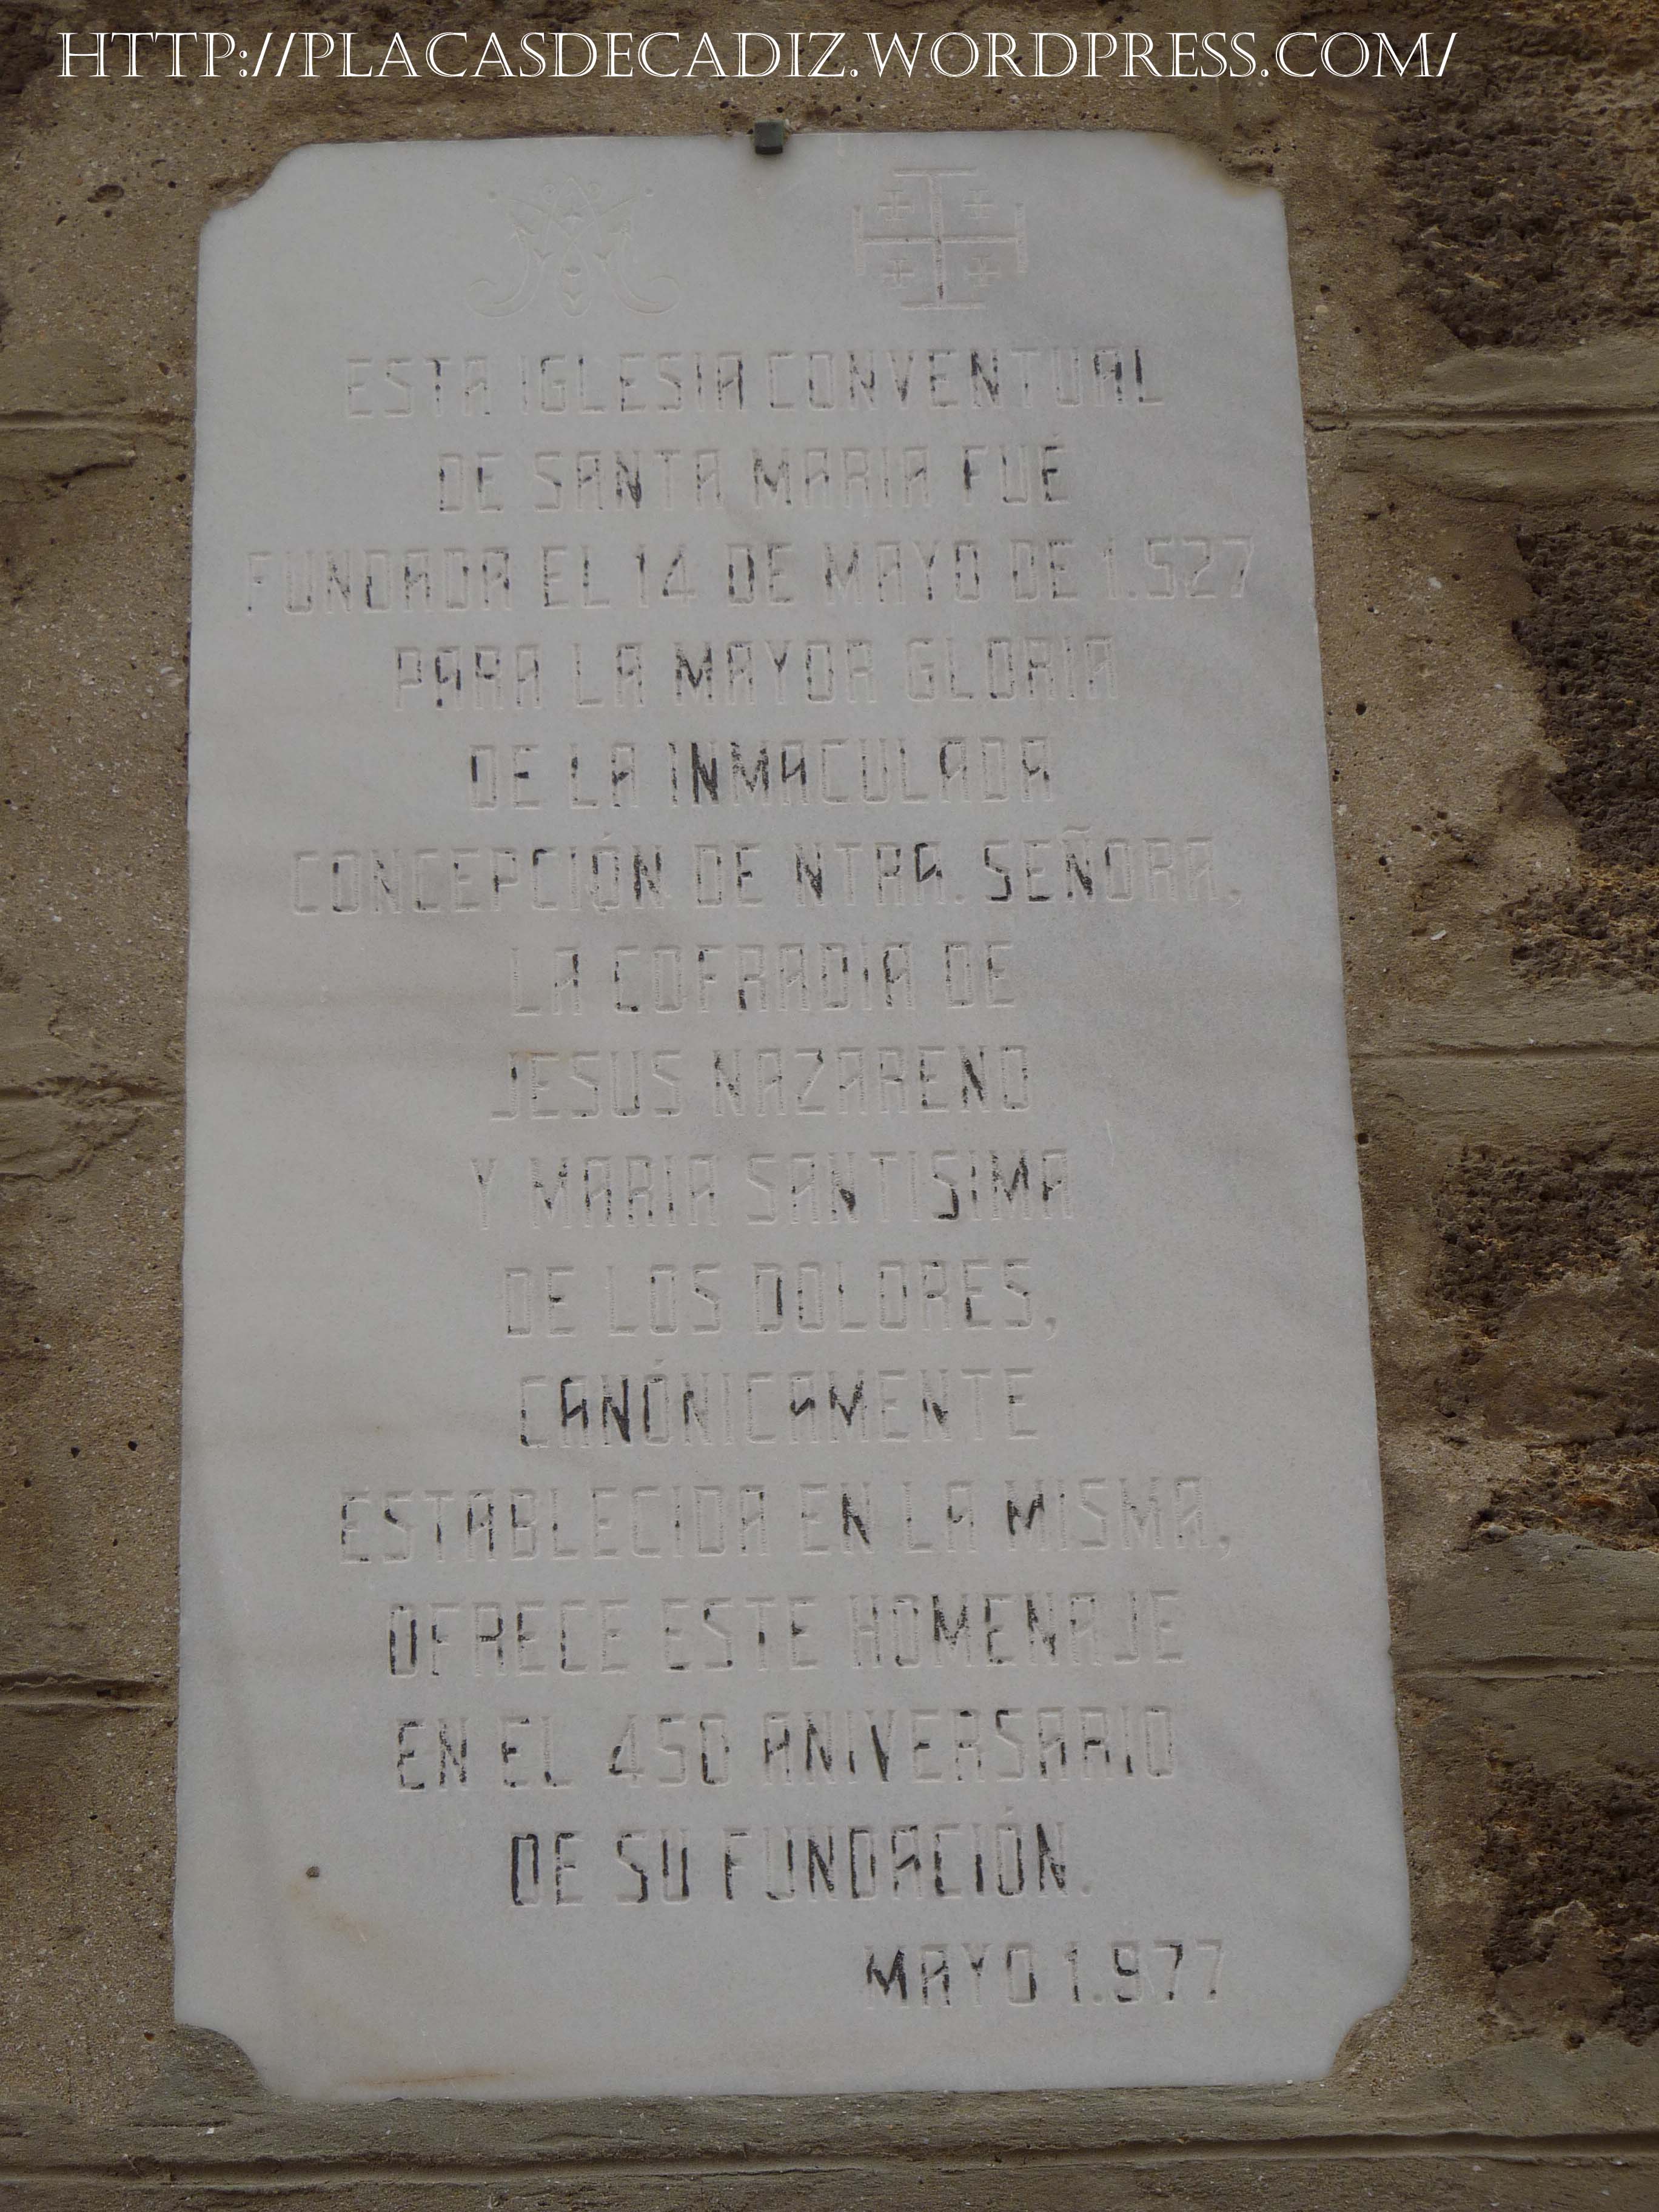 HTTP://PLACASDECADIZ.WORDPRESS.COM/
ESTA IGLESIA CONVENTUAL
DE SANTA MARIA FUÉ
FUNDADA EL 14 DE MAYO DE 1.527
PARA LA MAYOR GLORIA
DE LA INMACULADA
CONCEPCIÓN DE NTRA. SEÑORA,
LA COFRADIA DE
JESUS NAZARENO
Y MARIA SANTISIMA
DE LOS DOLORES,
CANÓNICAMENTE
ESTABLECIDA EN LA MISMA,
OFRECE ESTE HOMENAJE
EN EL 450 ANIVERSARIO
DE SU FUNDACIÓN.
MAYO 1.977